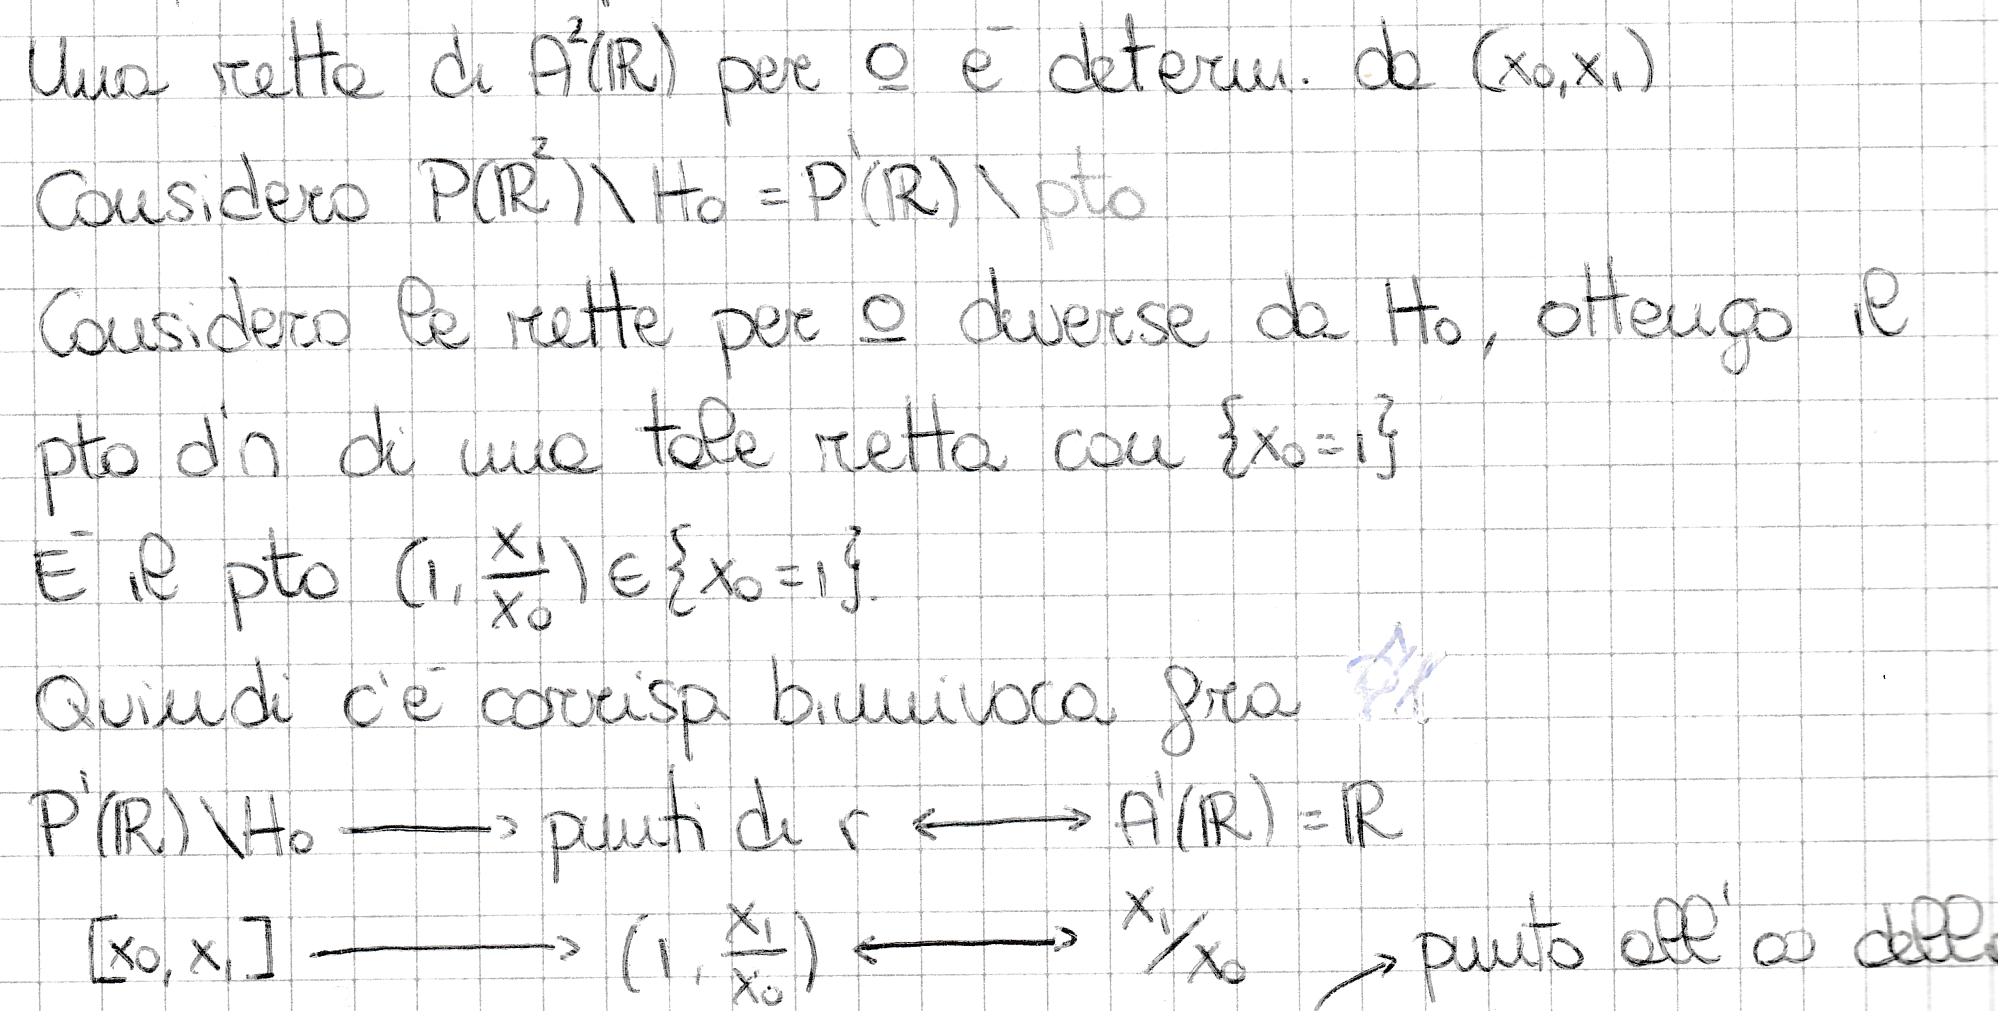 Una retta di A²(ℝ) per o è determ. da (x₀,x₁)
Considero P(ℝ²)\H₀ = P¹(ℝ)\pto
Considero le rette per o diverse da H₀, ottengo il
pto d'∩ di una tale retta con {x₀=1}
È il pto (1, x₁/x₀) ∈ {x₀=1}.
Quindi c'è corrisp biunivoca fra
P¹(ℝ)\H₀ → punti di r ↔ A¹(ℝ) = ℝ
[x₀, x₁] → (1, x₁/x₀) ↔ x₁/x₀ ↗ punto all'∞ della